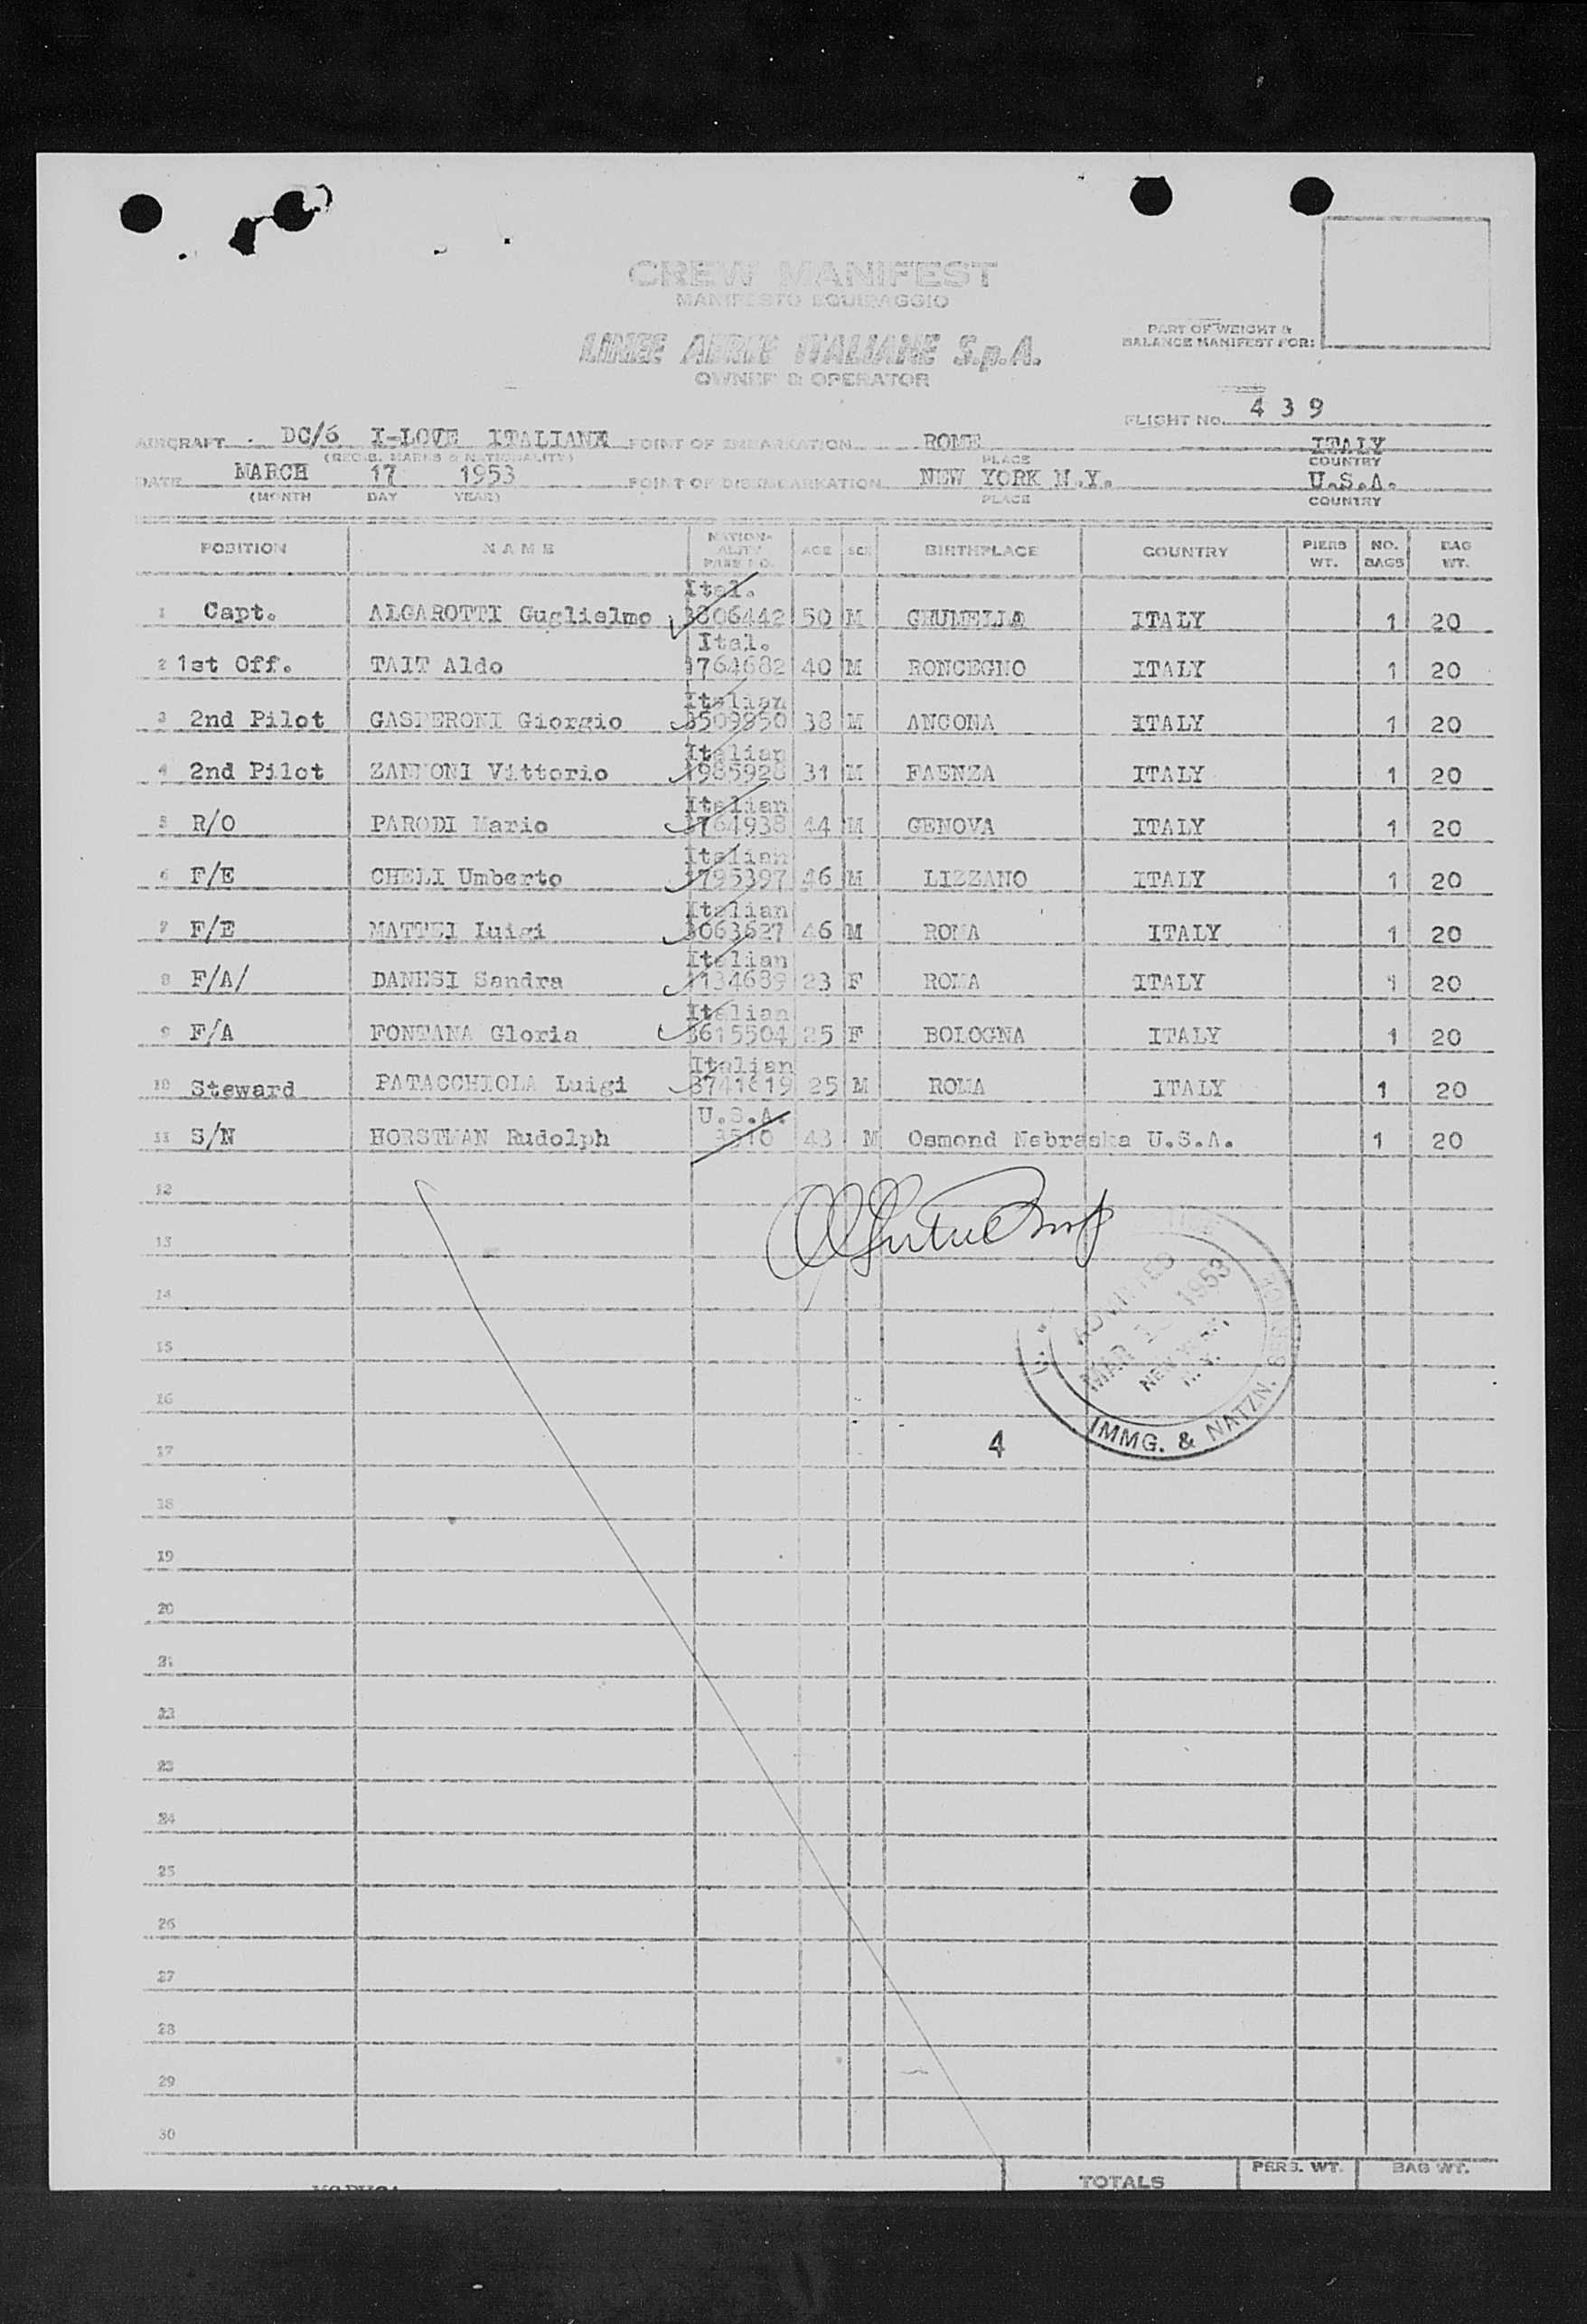 CREW MANIFEST
MANIFESTO EQUIPAGGIO
LINEE AEREE ITALIANE S.p.A.
OWNER & OPERATOR
PART OF WEIGHT &
BALANCE MANIFEST FOR:
FLIGHT No. 4 3 9
AIRCRAFT DC/6 I-LOVE ITALIANA POINT OF EMBARKATION ROME ITALY
(REGIS. MARKS & NATIONALITY) PLACE COUNTRY
DATE MARCH 17 1953 POINT OF DISEMBARKATION NEW YORK N.Y. U.S.A.
(MONTH DAY YEAR) PLACE COUNTRY
POSITION NAME NATION-ALITY PASS NO. AGE SEX BIRTHPLACE COUNTRY PIERS WT. NO. BAGS BAG WT.
Ital.
1 Capt. ALGAROTTI Guglielmo 3806442 50 M GRUMELLO ITALY 1 20
Ital.
2 1st Off. TAIT Aldo 1764682 40 M RONCEGNO ITALY 1 20
Italian
3 2nd Pilot GASPERONI Giorgio 3509950 38 M ANCONA ITALY 1 20
Italian
4 2nd Pilot ZANNONI Vittorio 1985928 31 M FAENZA ITALY 1 20
Italian
5 R/O PARODI Mario 1764938 44 M GENOVA ITALY 1 20
Italian
6 F/E CHELI Umberto 1795397 46 M LIZZANO ITALY 1 20
Italian
7 F/E MATTEI Luigi 3063627 46 M ROMA ITALY 1 20
Italian
8 F/A/ DANESI Sandra 1134689 23 F ROMA ITALY 1 20
Italian
9 F/A FONTANA Gloria 3615504 25 F BOLOGNA ITALY 1 20
Italian
10 Steward PATACCHIOLA Luigi 25 M ROMA ITALY 1 20
U.S.A.
11 S/N HORSTMAN Rudolph 43 M Osmond Nebraska U.S.A. 1 20
12
13
14
15
16
17
18
19
20
21
22
23
24
25
26
27
28
29
30
ADMITTED
MAR 1953
NEW YORK,
N.Y.
IMMG. & NATZN. SERVICE
4
TOTALS PERS. WT. BAG WT.